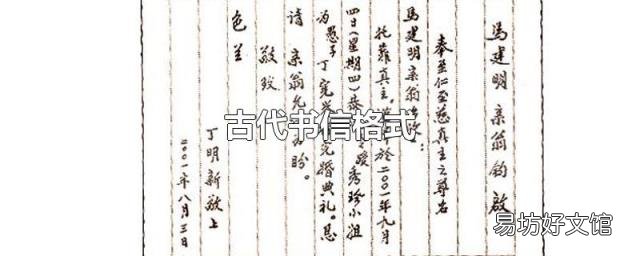 馬建明亲翁钧啟
奉至仁至慈真主之尊名
馬建明亲翁
托靠真主，於二〇〇一年九月
四日(星期四)恭嫒秀珍小姐
为愚子丁宪完婚典礼。恳
请 亲翁允为盼。
敬致
色兰
丁明新敬上
二〇〇一年八月三日
古代书信格式
易坊好文馆